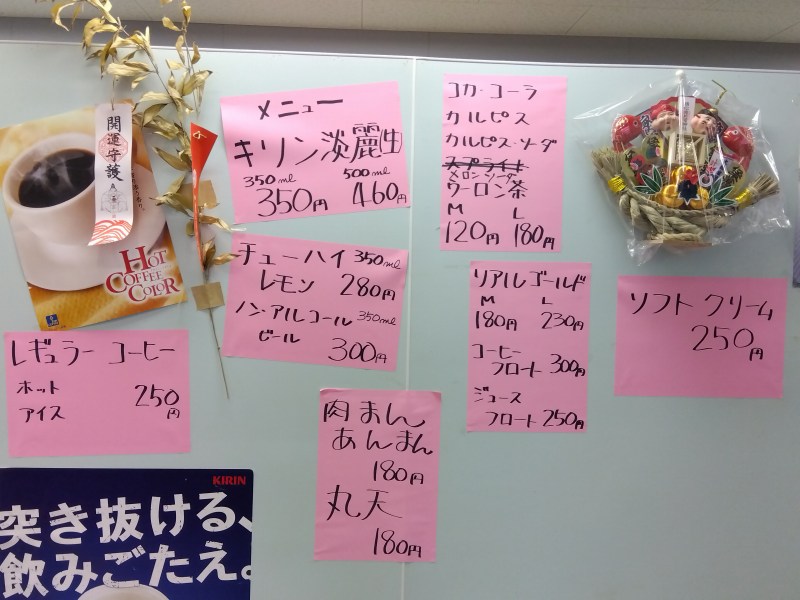 開運守護
HOT
COFFEE
COLOR
レギュラー コーヒー
ホット
アイス 250円
KIRIN
突き抜ける、
飲みごたえ。
メニュー
キリン淡麗生
350ml 500ml
350円 460円
チューハイ 350ml
レモン 280円
ノンアルコール 350ml
ビール 300円
肉まん
あんまん
180円
丸天
180円
コカ・コーラ
カルピス
カルピス・ソーダ
スプライト
メロンソーダ
ウーロン茶
M L
120円 180円
リアルゴールド
M L
180円 230円
コーヒー
フロート 300円
ジュース
フロート 250円
ソフトクリーム
250円